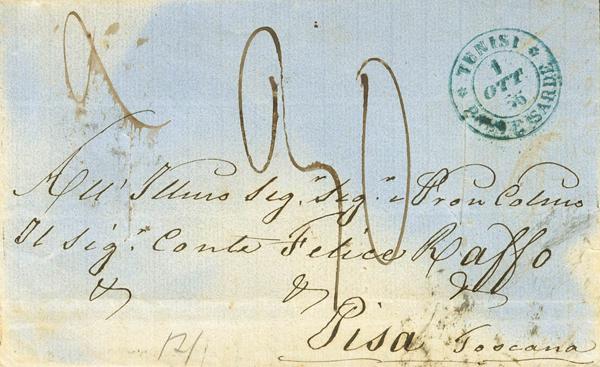 TUNISI
1
OTT
55
POSTE SARDE
All' Illmo Sig.r Sig.r e Pron Colmo
Il Sig.r Conte Felice Raffo
& & &
Pisa Toscana
12/1